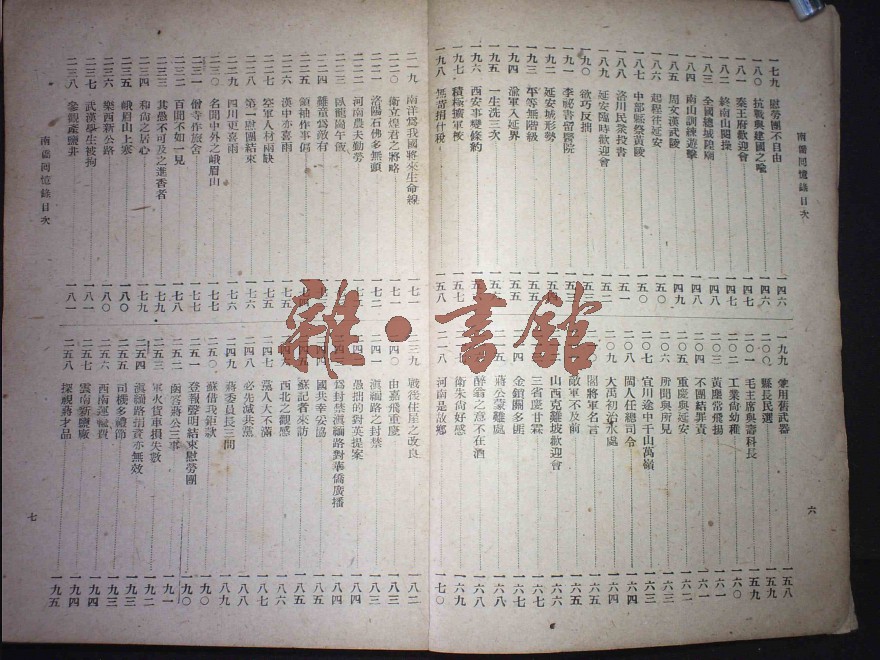 南僑回憶錄目次
一七九 慰勞團不自由 一四六
一八〇 抗戰與建國之喻 一四六
一八一 秦王府歡迎會 一四七
一八二 終南山閱操 一四七
一八三 全國總城隍廟 一四八
一八四 南山訓練遊擊 一四八
一八五 周文漢武陵 一四九
一八六 起程往延安 一四九
一八七 中部縣祭黃陵 一五〇
一八八 洛川民衆投書 一五一
一八九 延安臨時歡迎會 一五二
一九〇 欲巧反拙 一五二
一九一 李祕書留醫院 一五三
一九二 延安城形勢
一九三 平等無階級
一九四 渝軍入延界 一五五
一九五 一生洗三次 一五五
一九六 西安事變條約 一五六
一九七 積極擴軍後 一五七
一九八 無苛捐什稅 一五八
一九九 兼用舊武器 一五八
二〇〇 縣長民選 一五九
二〇一 毛主席與壽科長 一五九
二〇二 工業尚幼稚 一六〇
二〇三 黃塵常飛揚 一六一
二〇四 不團結罪責 一六一
二〇五 重慶與延安 一六二
二〇六 所聞與所見 一六三
二〇七 宜川途中千山萬嶺 一六三
二〇八 閻人任總司令 一六四
二〇九 大禹初治水處 一六五
閻將軍名言 一六五
敵軍不及前 一六六
山西克難坡歡迎會 一六六
三省慶甘霖 一六七
金鎖關多匪 一六八
蔣公蒙難處 一六八
醉翁之意不在酒 一六八
衛朱尚好感 一六九
二一八 河南是故鄉 一七〇
六
二一九 南洋爲我國將來生命線 一七一
二二〇 衛立煌君之將略 一七一
二二一 洛陽石佛多無頭 一七二
二二二 河南農夫勤勞
二二三 臥龍崗午飯
二二四 雖童爲敵有
二二五 領袖作事偈
二二六 漢中亦喜雨 一七五
二二七 空軍人材兩缺 一七五
二二八 第一慰團結束 一七六
二二九 四川更喜雨 一七六
二三〇 名聞中外之峨眉山 一七七
二三一 僧寺作旅舍 一七七
二三二 百聞不如一見 一七八
二三三 其愚不可及之進香者 一七九
二三四 和尚之居心 一七九
二三五 峨眉山上寨 一八〇
二三六 樂西新公路 一八〇
二三七 武漢學生被拘 一八一
二三八 參觀產鹽井 一八一
二三九 戰後住屋之改良 一八二
二四〇 由嘉飛重慶 一八三
二四一 滇緬路之封禁 一八三
愚拙的對英提案 一八四
爲封禁滇緬路對華僑廣播 一八四
國共幸妥協 一八五
蘇記者來訪 一八五
二四六 西北之觀感 一八六
二四七 黨人大不滿 一八七
二四八 必先滅共黨 一八八
二四九 蔣委員長三問 一八九
二五〇 蘇借我鉅款 一九〇
二五一 登報聲明結束慰勞團 一九〇
二五二 函答蔣公三事 一九一
二五三 軍火貨車損失數 一九二
二五四 滇緬路捐資亦無效 一九二
二五五 司機多禮節 一九三
二五六 西南運輸費 一九四
二五七 雲南新鹽廠 一九四
二五八 探視蔣才品 一九五
南僑回憶錄目次
七
雜·書館